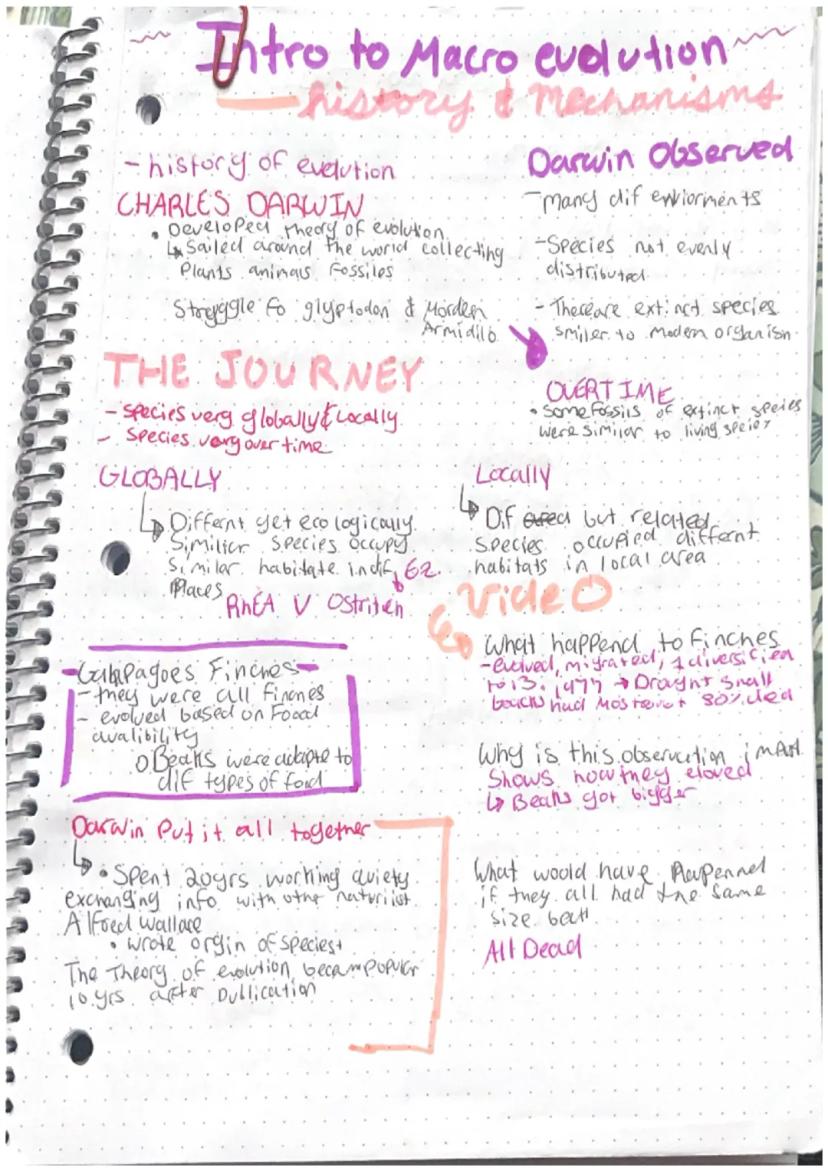 Intro to Macro evolution
history & Mechanisms
- history of evolution
CHARLES DARWIN
• Developed theory of evolution
↳ Sailed around the world collecting
Plants animals Fossiles
Struggle fo glyptodon & Morden
Armidilo
Darwin Observed
- many dif enviorments
- Species not evenly
distributed
- There are extinct species
smiler to modern organism
THE JOURNEY
- Species very globally & Locally
- Species very over time
OVERTIME
• Some fossils of extinct species
were similar to living speies
GLOBALLY
↳ Differnt yet ecologically
Similier species occupy
Similar habitate in dif
Places
EZ.
RhEA V Ostritch
Locally
↳ Dif but related
Species occupied differnt
habitats in local area
Video
What happend to Finches
- evolved, migrated, & diversified
to 13. 1977 → Drought small
beacks had Mostenot 80% died
Why is this observation
Shows how they eloved
↳ Beaks got bigger
What would have Happennel
if they all had the same
size beak
All Dead
Galapagoes Finches
- they were all finches
- evolved based on Food
avalibility
o Beaks were adapte to
dif types of food
Darwin Put it all together
↳ • Spent 20yrs working quiety
exchanging info with othe naturilist
Alfred Wallace
• wrote orgin of species
The Theory of evolution becam popular
10 yrs after Pullication